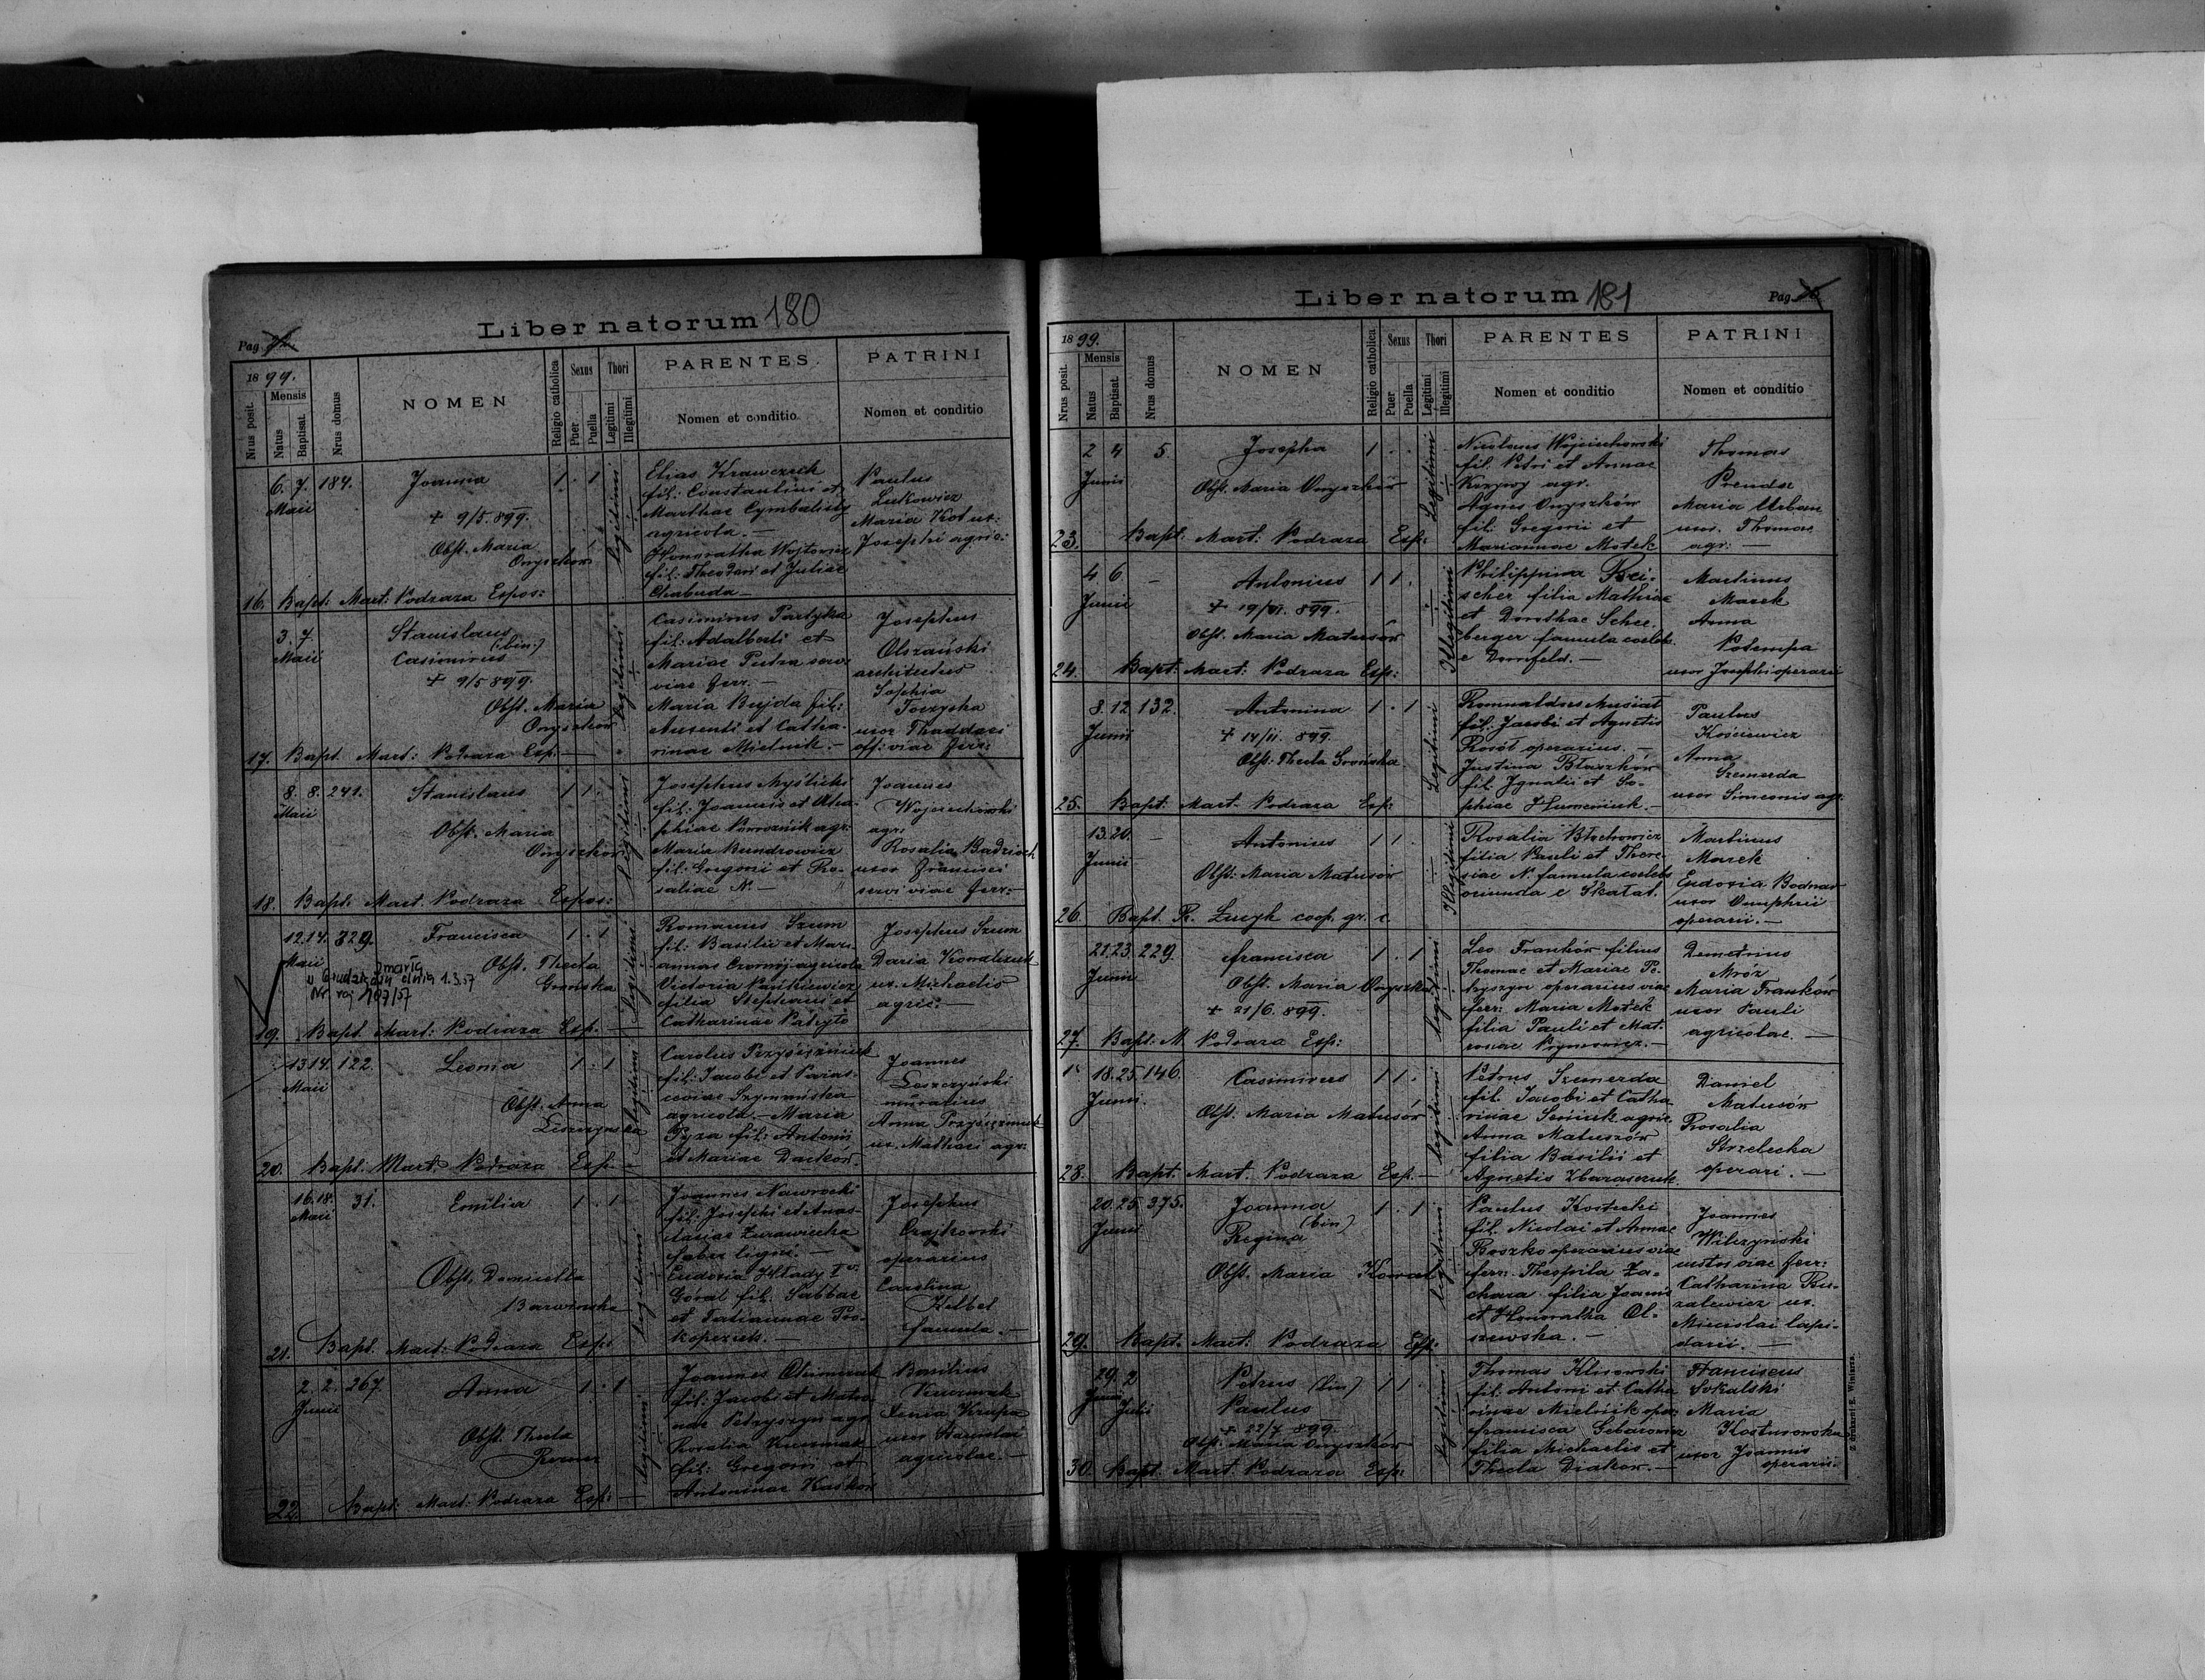 Liber natorum 180
Pag.
1899.
Nrus posit.
Mensis
Natus
Baptisat.
Nrus domus
NOMEN
Religio catholica
Sexus
Puer
Puella
Thori
Legitimi
Illegitimi
PARENTES
Nomen et conditio
PATRINI
Nomen et conditio
6. 7. 184. Joanna 1 . 1 legitimi
Maii
+ 9/5. 899.
Obst. Maria
Onyszków
Elias Krawczuk
fil: Constantini et
Marthae Cymbalisty
agricola. —
Honoratha Wojtowicz
fil: Theodori et Juliae
Chabuda —
Paulus
Lutkowicz
Maria Kot ux:
Josephi agric:
16. Bapt: Mart: Podraza Espos:
3. 7.
Maii
Stanislaus
(bin:)
Casimirus
+ 9/5 899.
Obst. Maria
Onyszków
legitimi
Casimirus Partyka
fil: Adalberti et
Mariae Putra ser-
viae ferr. —
Maria Bujda fil:
et Catha-
rinae Mielnik. —
Josephus
Olszański
architectus
Sophia
Toczyska
uxor Thaddaei
off: viae ferr:
17. Bapt. Mart: Podraza Esp: —
8. 8. 241. Stanislaus 1 1 . legitimi
Maii
Obst. Maria
Onyszków
Josephus Myślicki
fil: Joannis et Aga-
phiae Powroźnik agr:
Maria Bundrowicz
fil: Gregorii et Ro-
saliae N. —
Joannes
Wojciechowski
agr:
Rosalia Badzioch
uxor Francisci
servi viae ferr: —
18. Bapt. Mart. Podraza Espos:
12. 14. 329. Francisca 1 . 1 legitimi
Maii
zmarła
1.3.57
107/57
Obst. Thecla
Grońska
Romanus Szum
fil: Basilii et Mari-
annae Czornij agricola
Victoria Pańkiewicz
filia Stephani et
Catharinae
Josephus Szum
Daria Kondziuk
ux. Michaelis
agric: —
19. Bapt. Mart: Podraza Esp: —
13. 14. 122. Leonia 1 . 1 legitimi
Maii
Obst. Anna
Leszczyńska
Carolus Przysiężniuk
fil: Jacobi et Paras-
ceviae Szymańska
agricola. — Maria
Pyza fil: Antonii
et Mariae Daćków.
Joannes
Leszczyński
murarius
Anna Przysiężniuk
ux. Mathaei agr:
20. Bapt: Mart: Podraza Esp: —
16. 18. 31. Emilia 1 . 1 legitimi
Maii
Obst. Domicella
Barwińska
Joannes Nawrocki
fil: Josephi et Anas-
tasiae Żurawiecka
faber ligni. —
Eudoxia Hłady Iv.
Góral fil. Sabbae
et Tatiannae Pro-
kopczuk. —
Josephus
Czajkowski
operarius
Carolina
Helbel
famula. —
21. Bapt. Mart: Podraza Esp:
2. 2. 267. Anna 1 . 1 legitimi
Junii
Obst. Thecla
Joannes
fil: Jacobi et Matro-
nae Petryszyn agr:
Rosalia Kuzmiak
fil: Gregorii et
Antoninae Kaśków
Basilius
Kuzmiak
Xenia Krupa
uxor Stanislai
agricolae. —
22. Bapt: Mart: Podraza Esp: —
Liber natorum 181
Pag.
1899.
Nrus posit.
Mensis
Natus
Baptisat.
Nrus domus
NOMEN
Religio catholica
Sexus
Puer
Puella
Thori
Legitimi
Illegitimi
PARENTES
Nomen et conditio
PATRINI
Nomen et conditio
2 4 5. Josepha 1 . . Legitimi
Junii
Obst. Maria Onyszków
Nicolaus Wojciechowski
fil. Petri et Annae
agr.
Agnes Onyszków
fil: Gregorii et
Mariannae Motek
Thomas
Prenda
Maria Urban
uxor. Thomae
agr: —
23. Bapt. Mart: Podraza Esp:
4 6. — Antonius 1 1 . Illegitimi
Junii
+ 19/VI. 899.
Obst. Maria Matusów
Philippina Frei-
scher filia Mathiae
et Dorothae Schee-
berger famula coeleb.
e Dornfeld. —
Martinus
Marek
Anna
Potempa
uxor Josephi operarii
24. Bapt. Mart: Podraza Esp:
8. 12. 132. Antonina 1 . 1 Legitimi
Junii
+ 14/6. 899.
Obst. Thecla Grońska
Romualdus Musiał
fil: Jacobi et Agnetis
Rosół operarius. —
Justina Błaszków
fil. Ignatii et So-
phiae Humeniuk. —
Paulus
Kościewicz
Anna
Szemerda
uxor Simeonis agr.
25. Bapt: Mart. Podraza Esp:
13. 20. — Antonius 1 1 . Illegitimi
Junii
Obst: Maria Matusów
Rosalia Błochowicz
filia Pauli et There-
siae N. famula coelebs
oriunda e Skałat.
Martinus
Marek
Eudoxia Bodnar
uxor Onuphrii
operarii. —
26. Bapt. R. Łucyk coop. gr. c.
21. 23. 229. Francisca 1 . 1 legitimi
Junii
Obst. Maria Onyszków
+ 21/6. 899.
Leo Franków filius
Thomae et Mariae Pe-
tryszyn operarius viae
ferr: Maria Motek
filia Pauli et Mat-
ronae
Demetrius
Mróz
Maria Franków
uxor Pauli
agricolae. —
27. Bapt: M. Podraza Esp:
18. 25. 146. Casimirus 1 1 . legitimi
Junii.
Obst. Maria Matusów
Petrus Szemerda
fil. Jacobi et Catha-
rinae Seniuk agric.
Anna Matuszów
filia Basilii et
Agnetis Zbaraszczuk.
Daniel
Matusów
Rosalia
Strzelecka
operari. —
28. Bapt. Mart. Podraza Esp. —
20. 25. 375. Joanna 1 . 1 legitimi
Junii
(bin)
Regina
Obst. Maria Kowal
Paulus Kostecki
fil. Nicolai et Annae
Boszko operarius viae
ferr: Theophila Za-
chara filia Joannis
et Honoratha Ol-
szewska. —
Joannes
Wilczyński
custos viae ferr:
Catharina Ru-
zalewicz ux.
Miecislai lapi-
darii. —
29. Bapt. Mart: Podraza Esp:
29. 2 Petrus (bin) 1 1 . legitimi
Junii Julii
Paulus
+ 22/7 899.
Obst. Maria Onyszków
Thomas Klisowski
fil: Antoni et Catha-
rinae Mielnik oper.
Francisca Gebarowicz
filia Michaelis et
Thecla Diaków. —
Franciscus
Sokalski
Maria
Kosturowska
uxor Joannis
operarii. —
30. Bapt. Mart. Podraza Esp:
Z drukarni E. Winiarza.